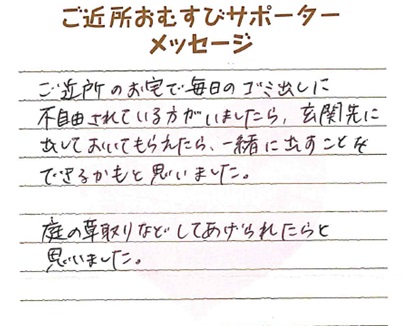 ご近所おむすびサポーター
メッセージ
ご近所のお宅で毎日のゴミ出しに
不自由されている方がいましたら、玄関先に
出しておいてもらえたら、一緒に出すことも
できるかもと思いました。
庭の草取りなどしてあげられたらと
思いました。